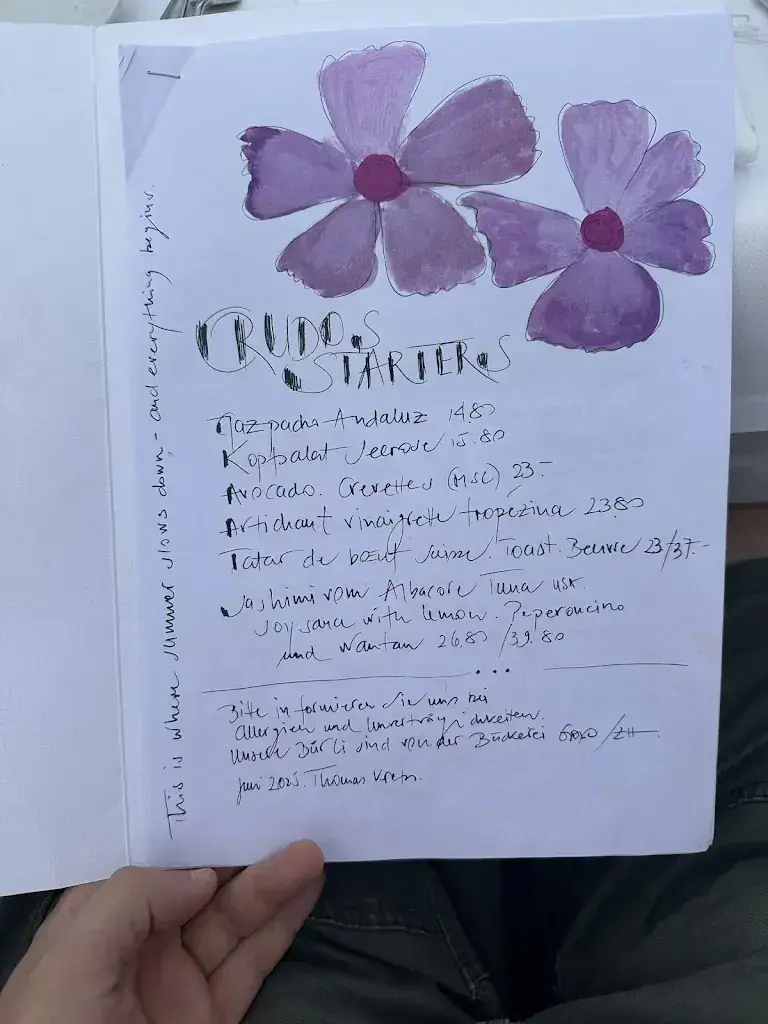 This is where summer slows down – and everything begins.
CRUDOS
STARTERS
Gazpacho Andaluz 14.80
Kopfsalat Seerose 15.80
Avocado. Crevettes (MSC) 23.–
Artichaut vinaigrette tropézina 23.80
Tatar de bœuf suisse. Toast. Beurre 23/37.–
Sashimi vom Albacore Tuna
Soysauce with Lemon. Peperoncino
und Wantan 26.80 / 39.80
...
Bitte informieren Sie uns bei
Allergien und Unverträglichkeiten.
Unsere Bürli sind von der Bäckerei / ZH
Juni 2025. Thomas